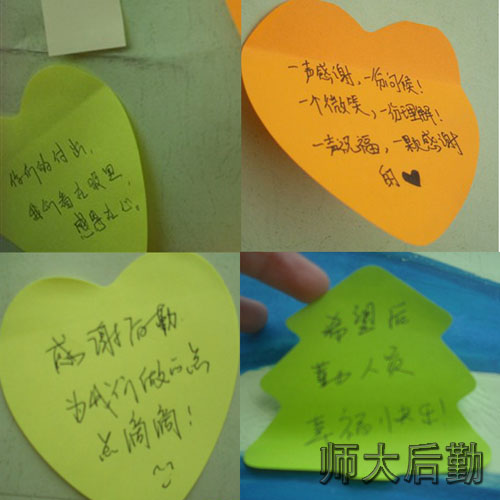 你们的付出,
我们看在眼里
感恩在心。
一声感谢,一份问候!
一个微笑,一份理解!
一声祝福,一颗感谢
的♥
感谢后勤
为我们做的点
点滴滴!
希望后
勤人员
幸福快乐!
师大后勤